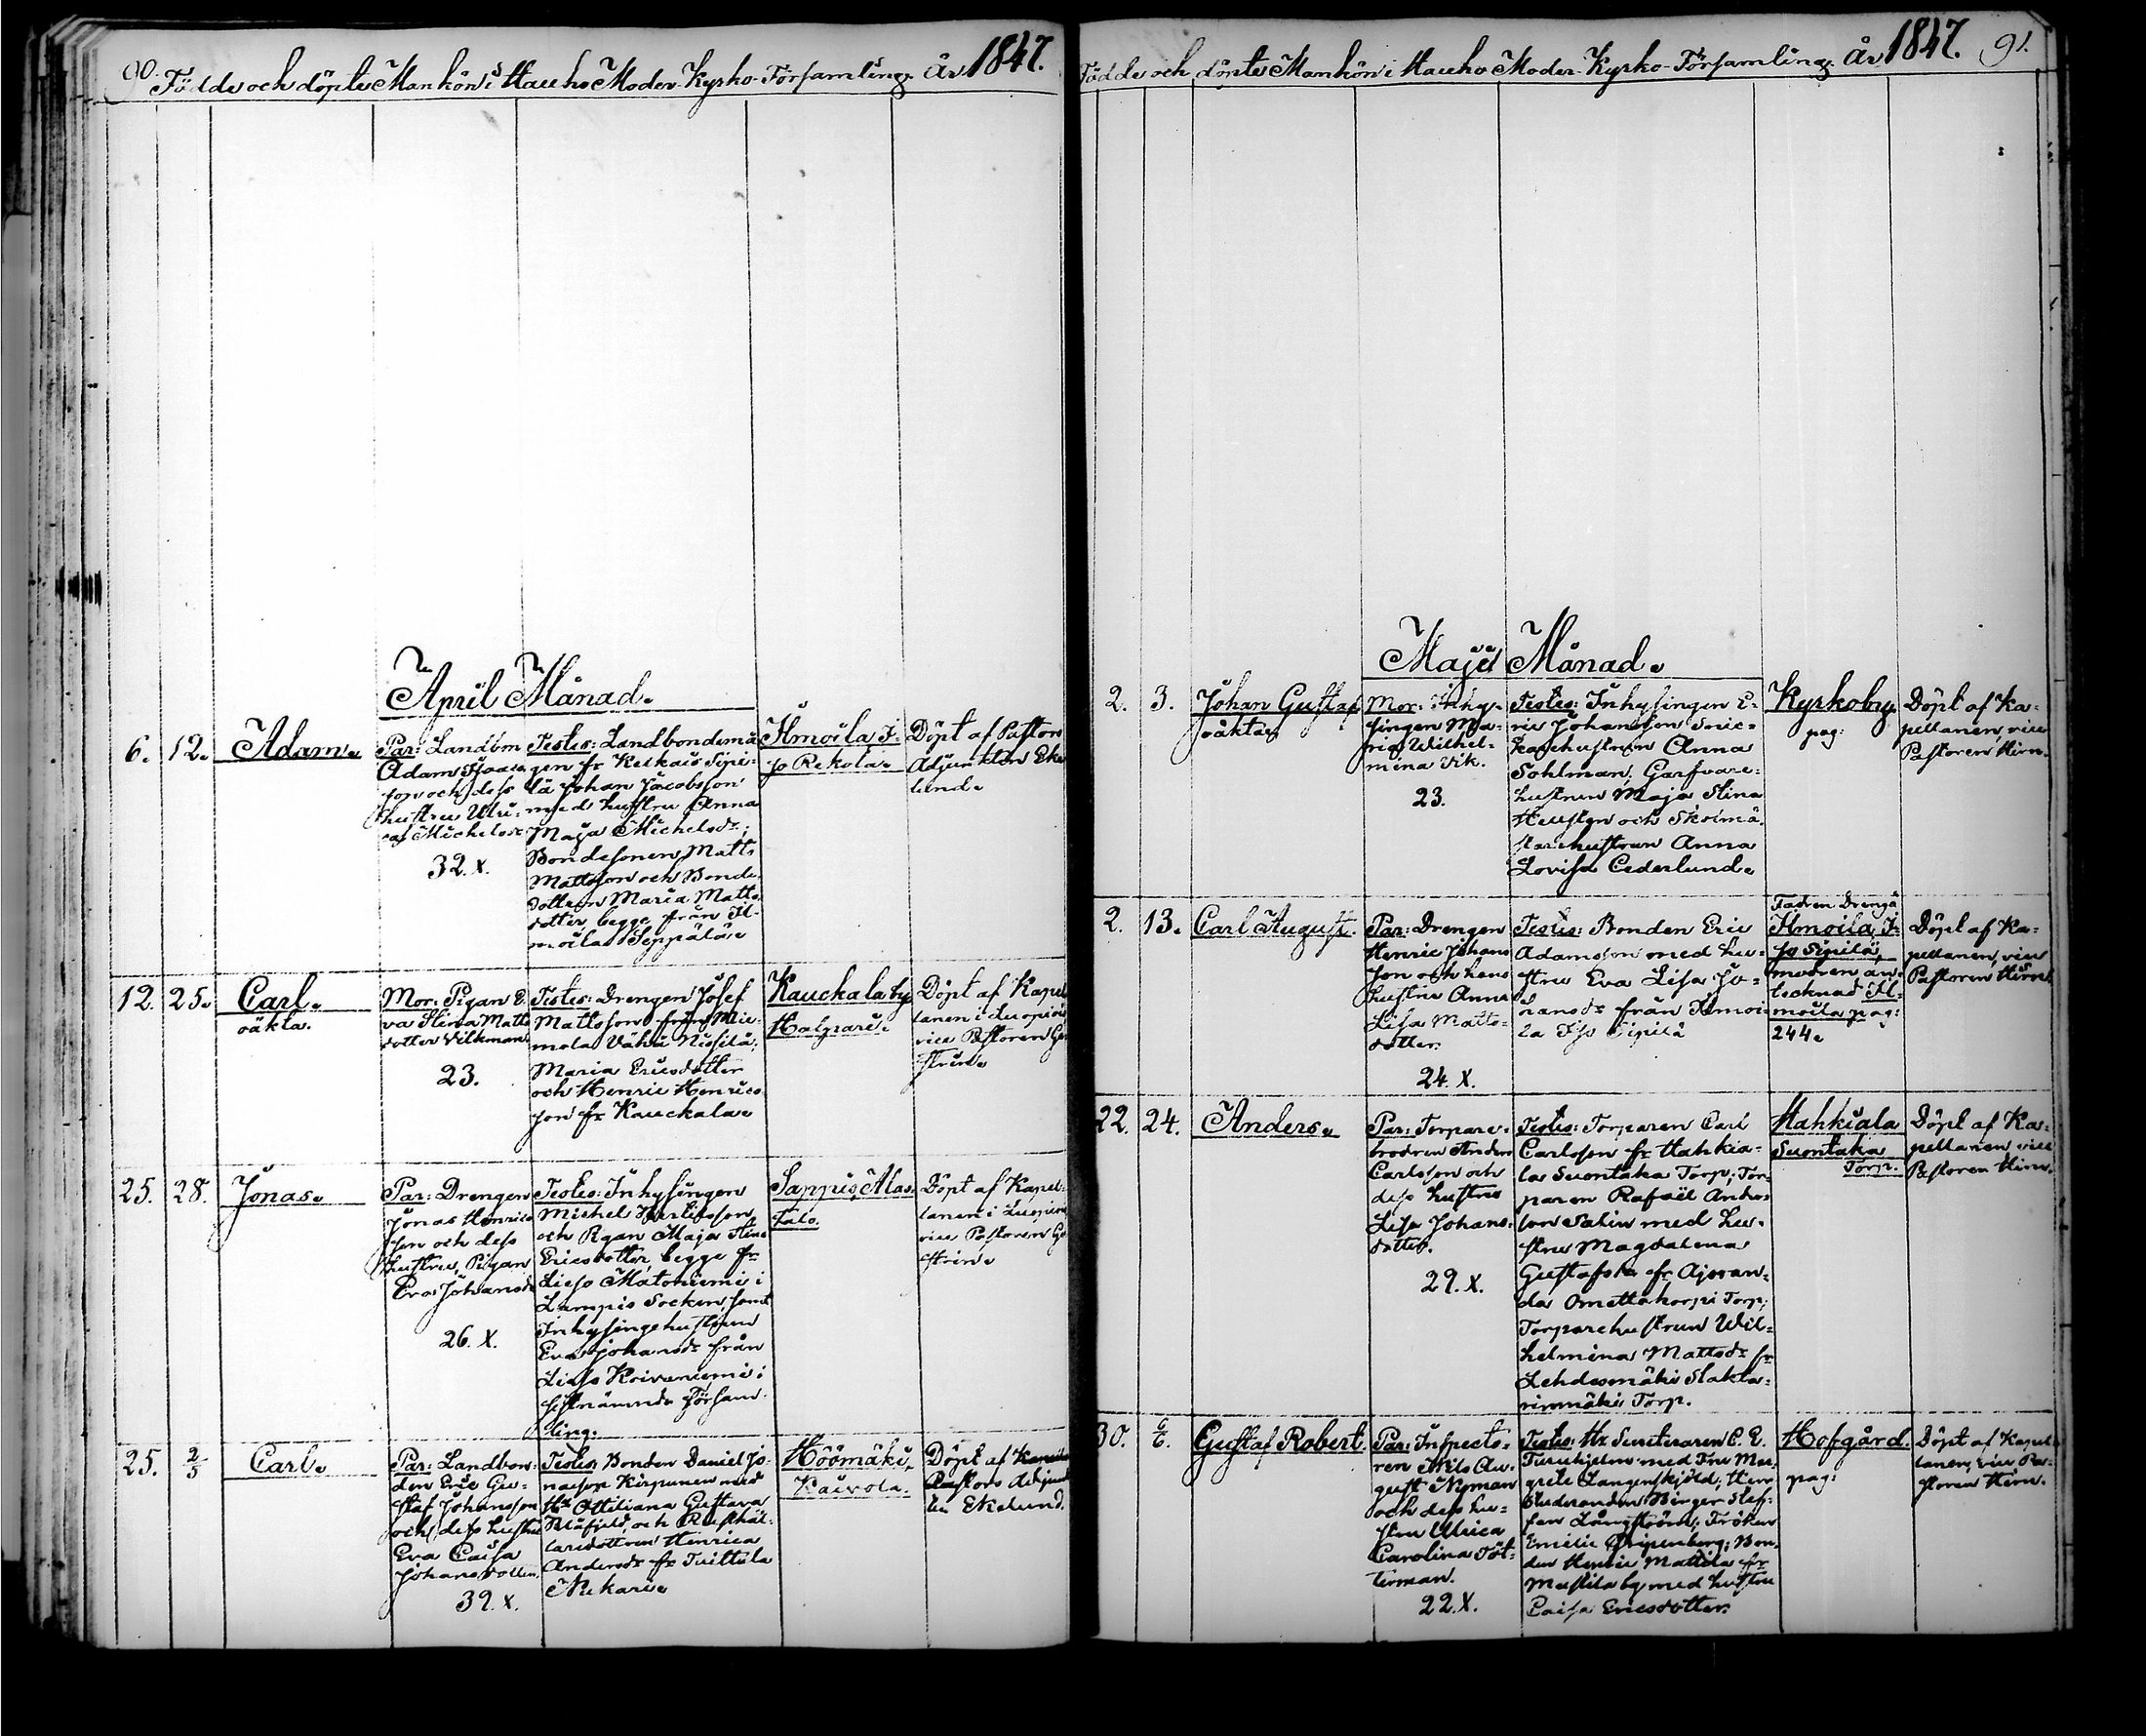 90. Födde och döpte Mankön i Hauho Moder-Kyrko-Församling. År 1847.
April Månad.
6. 12. Adam.
Par: Landbm
Adam Isaacs
son och dess
hustru Ulri-
ca Michelsdr
32. X.
Testes: Landbondemå
gen fr Keikais Sipi-
lä Johan Jacobsson
med hustru Anna
Maja Michelsdr;
Bondesonen Matts
Mattsson och Bonde-
dottren Maria Matts
dotter, begge från Il-
moila Seppälä.
Ilmoila I-
so Rekola.
Döpt af Pastors
Adjunkten Eke
lund.
12. 25. Carl.
oäkta.
Mor: Pigan E-
va Stina Matts
dotter Vilkman
23.
Testes: Drengen Josef
Mattsson från Mie-
mola Vähä Nissilä;
Maria Ericsdotter
och Henric Henrics
son fr Kauckala.
Kauckala by
Halpari.
Döpt af Kapel
lanen i Luopiois
vice Pastoren Ge
strin.
25. 28. Jonas.
Par: Drengen
Jonas Henrics
son och dess
hustru, Pigan
Eva Johansdr
26. X.
Testes: Inhysingen
Michel
och Pigan Maja Stina
Ericsdotter, begge fr
Lieso Matoniemi i
Lampis Socken, samt
Inhysingehustrun
Eva Johansdr från
Lieso Koivuniemi i
sistnämnde Försam-
ling.
Sappis Ala-
Talo.
Döpt af Kapel-
lanen i Luopiois
vice Pastoren Ge
strin.
25. 2/5 Carl.
Par: Landbon-
den Eric Gu-
staf Johansson
och dess hustru
Eva Caisa
Johansdotter.
39. X.
Testes: Bonden Daniel Jo-
nasson Kirpunen med
Hu Ottiliana Gustava
Blåfjeld, och Rusthål-
laredottren Henrica
Andersdr fr Tuittula
Nekari.
Höömäki,
Kaivola.
Döpt af
Pastors Adjunk
ten Ekelund.
Födde och döpte Mankön i Hauho Moder-Kyrko-Församling. År 1847. 91.
Maji Månad.
2. 3. Johan Gustaf
oäkta
Mor: Inhy-
singen Ma-
ria Wilhel-
mina Vik.
23.
Testes: Inhysingen E-
ric Johansson Snic-
karehustrun Anna
Sohlman; Garfvare-
hustrun Maja Stina
Heusten och Skolmä-
starehustrun Anna
Lovisa Cederlund.
Kyrkoby
pag:
Döpt af Ka-
pellanen, vice
Pastoren Hirn.
2. 13. Carl August.
Par: Drengen
Henric Johans
son och hans
hustru Anna
Lisa Matts-
dotter.
24. X.
Testes: Bonden Eric
Adamsson med hu-
stru Eva Lisa Jo-
hansdr från Ilmoi-
la Iso Sipilä
Fadren Dreng å
Ilmoila I-
so Sipilä,
modren an-
tecknad Il-
moila pag:
244.
Döpt af Ka-
pellanen, vice
Pastoren Hirn.
22. 24. Anders.
Par: Torpare-
brodren Anders
Carlsson och
dess hustru
Lisa Johans-
dotter.
29. X.
Testes: Torparen Carl
Carlsson fr Hahkia-
la Suontaka Torp; Tor-
paren Rafaël Anders-
son Salin med hu-
stru Magdalena
Gustafsdr fr Ajoran-
da Omettakorpi Torp;
Torparehustrun Wil-
helmina Mattsdr fr
Lehdesmäki Slakta-
rinmäki Torp.
Hahkiala
Suontaka
Torp.
Döpt af Ka-
pellanen vice
Pastoren Hirn.
30. 6/6. Gustaf Robert.
Par: Inspecto-
ren Nils Au-
gust Nyman
och dess hu-
stru Ulrica
Carolina Töt-
terman.
22. X.
Testes: Hr C. E.
Furuhjelm med Fru Mar-
greta Langenskjöld; Herr
Studeranden Birger Stef-
fan Långström; Fröken
Emilie Gripenberg; Bon-
den Henric Mattila fr
Mustila by med hustru
Caisa Ericsdotter.
Hofgård.
pag:
Döpt af Kapel-
lanen, vice Pa-
storen Hirn.